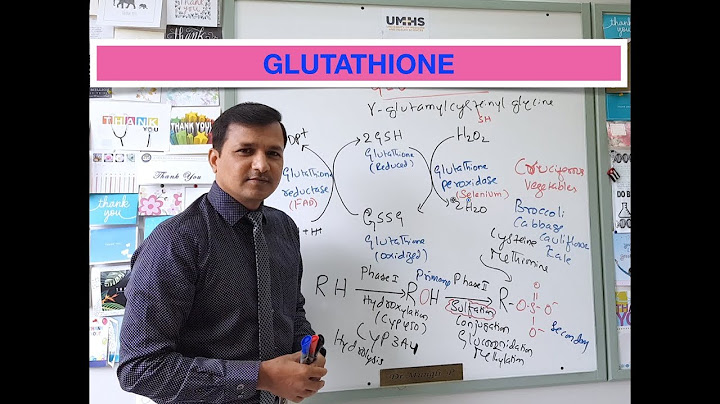 UMHS
GLUTATHIONE
γ-glutamylcysteinyl glycine
SH
2GSH
Glutathione
(Reduced)
H2O2
Glutathione
reductase
(FAD)
Glutathione
peroxidase
(Selenium)
2H2O
GSSG
Glutathione
(oxidized)
+ H+
Cruciferous
Vegetables
Broccoli
Cabbage
Cauliflower
Kale
Cysteine
Methionine
RH
Phase I
Hydroxylation
(CYP450)
CYP3A4
Hydrolysis
Primary
ROH
Phase II
Sulfation
Conjugation
Glucoronidation
Methylation
R-O-S-O-
O
O
O-
Secondary
THANK
YOU
THANK
YOU!
Thank You
thank
you
thank
you